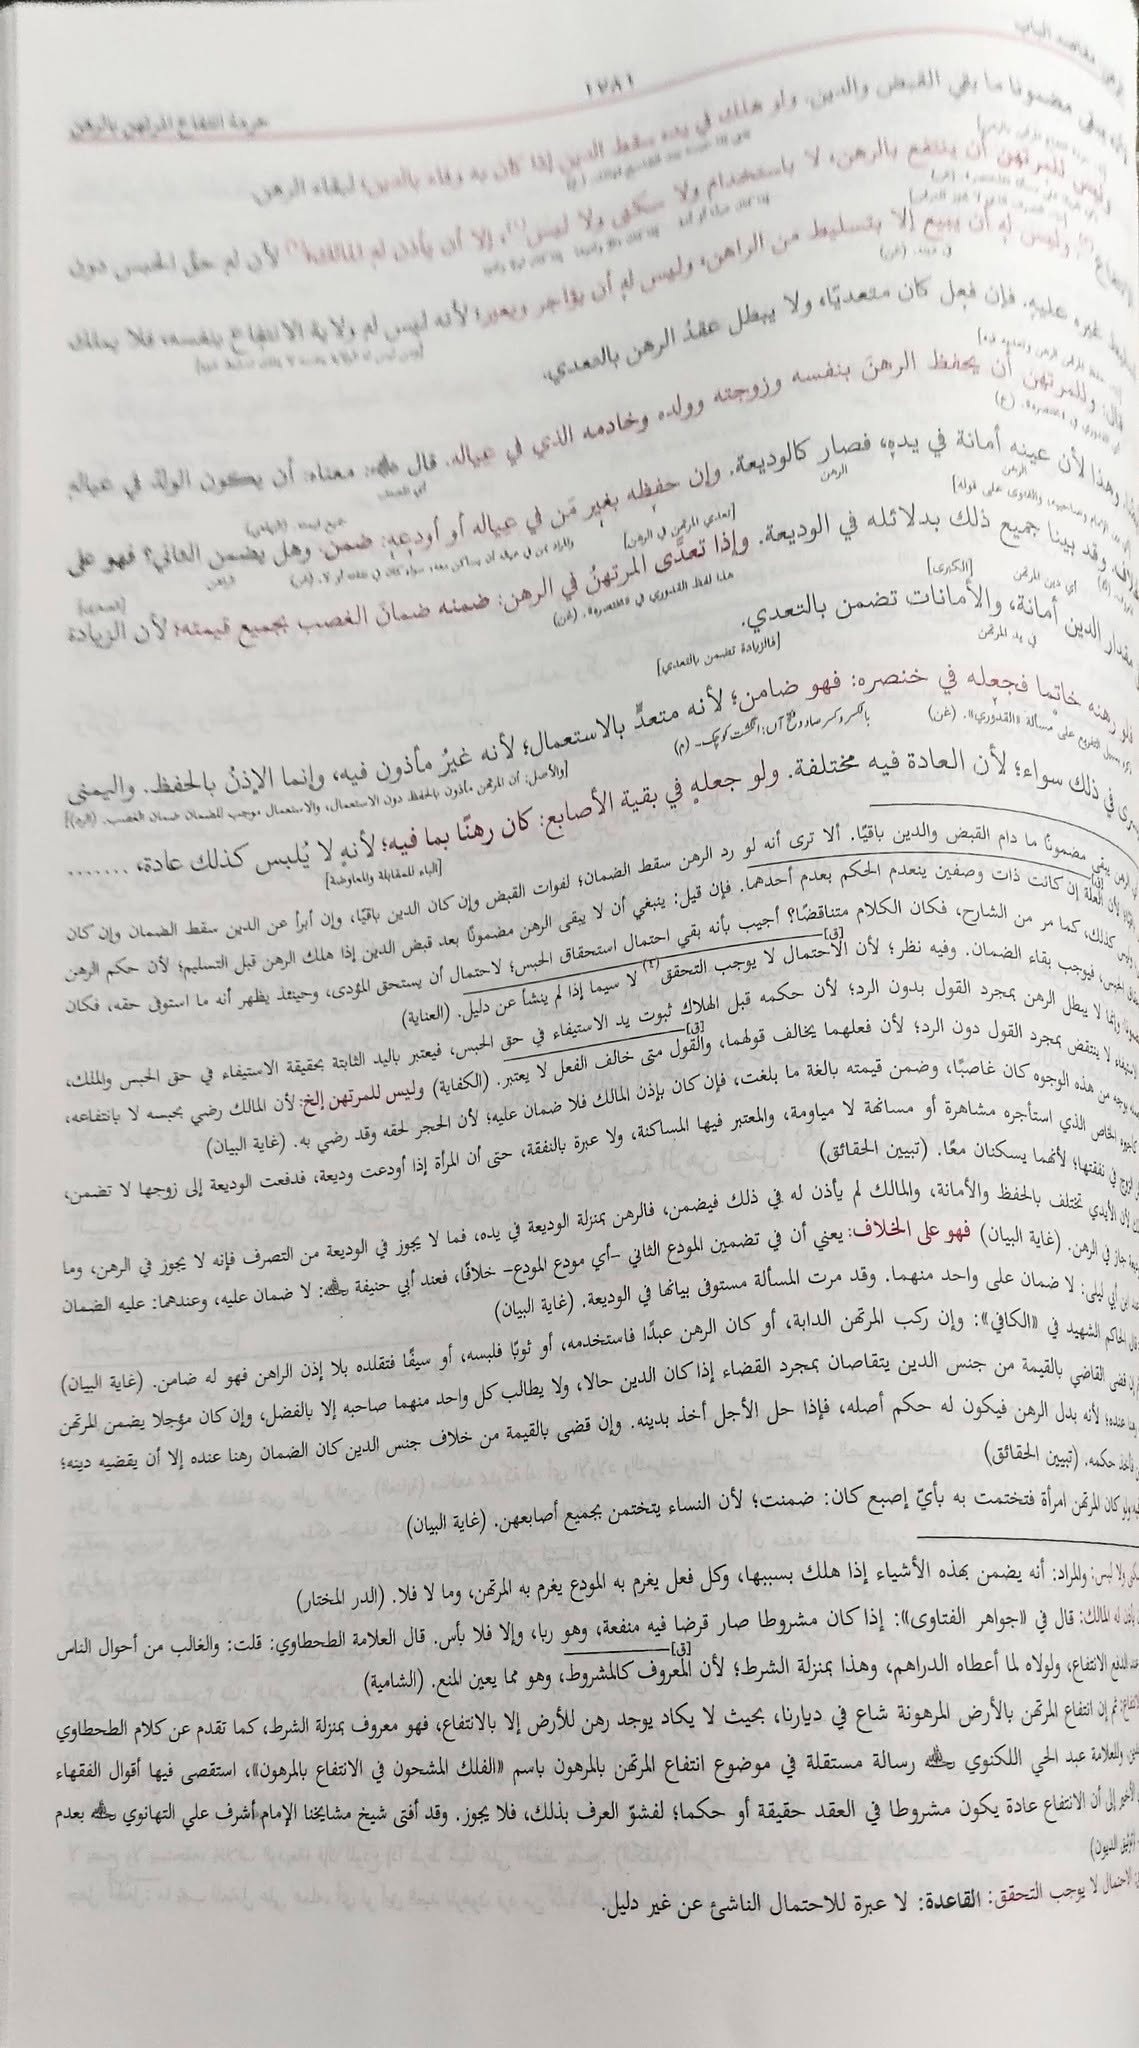 ١٢٨١
حرمة انتفاع المرتهن بالرهن
يبقى مضمونا ما بقي القبض والدين. ولو هلك في يده سقط الدين إذا كان به وفاء بالدين؛ لبقاء الرهن.
وليس للمرتهن أن ينتفع بالرهن، لا باستخدام ولا سكنى ولا لبس، إلا أن يأذن له المالك؛ لأن له حق الحبس دون
وليس له أن يبيع إلا بتسليط من الراهن، وليس له أن يؤاجر ويعير؛ لأنه ليس له ولاية الانتفاع بنفسه، فلا يملك
غيره عليه. فإن فعل كان متعديًا، ولا يبطل عقدُ الرهن بالتعدي.
قال: وللمرتهن أن يحفظ الرهن بنفسه وزوجته وولده وخادمه الذي في عياله. قال: معناه: أن يكون الولد في عياله
وهذا لأن عينه أمانة في يده، فصار كالوديعة. وإن حفظه بغير مَن في عياله أو أودعه: ضمن. وهل يضمن الثاني؟ فهو على
الرهن
الرهن
وقد بينا جميع ذلك بدلائله في الوديعة. وإذا تعدَّى المرتهنُ في الرهن: ضمنه ضمانَ الغصب بجميع قيمته؛ لأن الزيادة
أي دين المرتهن
[الكبرى]
هذا لفظ القدوري في «مختصره». (غن)
مقدار الدين أمانة، والأمانات تضمن بالتعدي.
في يد المرتهن
[فالزيادة تضمن بالتعدي]
رهنه خاتمًا فجعله في خنصره: فهو ضامن؛ لأنه متعدٍّ بالاستعمال؛ لأنه غيرُ مأذون فيه، وإنما الإذنُ بالحفظ. واليمنى
على مسألة «القدوري». (غن)
[والأصل: أن المرتهن مأذون بالحفظ دون الاستعمال، والاستعمال موجب للضمان ضمان الغصب.
في ذلك سواء؛ لأن العادة فيه مختلفة. ولو جعله في بقية الأصابع: كان رهنًا بما فيه؛ لأنه لا يُلبس كذلك عادة، .......
[الباء للمقابلة والمعاوضة]
يبقى مضمونًا ما دام القبض والدين باقيًا. ألا ترى أنه لو رد الرهن سقط الضمان؛ لفوات القبض وإن كان الدين باقيًا، وإن أبرأ عن الدين سقط الضمان وإن كان
لأن العلة إن كانت ذات وصفين ينعدم الحكم بعدم أحدهما. فإن قيل: ينبغي أن لا يبقى الرهن مضمونًا بعد قبض الدين إذا هلك الرهن قبل التسليم؛ لأن حكم الرهن
كذلك، كما مر من الشارح، فكان الكلام متناقضًا؟ أجيب بأنه بقي احتمال استحقاق الحبس؛ لاحتمال أن يستحق المؤدى، وحينئذ يظهر أنه ما استوفى حقه، فكان
الحبس، فيوجب بقاء الضمان. وفيه نظر؛ لأن الاحتمال لا يوجب التحقق(٤) لا سيما إذا لم ينشأ عن دليل. (العناية)
وإنما لا يبطل الرهن بمجرد القول بدون الرد؛ لأن حكمه قبل الهلاك ثبوت يد الاستيفاء في حق الحبس، فيعتبر باليد الثابتة بحقيقة الاستيفاء في حق الحبس والملك،
لا ينتقض بمجرد القول دون الرد؛ لأن فعلهما يخالف قولهما، والقول متى خالف الفعل لا يعتبر. (الكفاية) وليس للمرتهن إلخ: لأن المالك رضي بحبسه لا بانتفاعه،
من هذه الوجوه كان غاصبًا، وضمن قيمته بالغة ما بلغت، فإن كان بإذن المالك فلا ضمان عليه؛ لأن الحجر لحقه وقد رضي به. (غاية البيان)
الخاص الذي استأجره مشاهرة أو مسانهة لا مياومة، والمعتبر فيها المساكنة، ولا عبرة بالنفقة، حتى أن المرأة إذا أودعت وديعة، فدفعت الوديعة إلى زوجها لا تضمن،
الزوج في نفقتها؛ لأنهما يسكنان معًا. (تبيين الحقائق)
لأن الأيدي تختلف بالحفظ والأمانة، والمالك لم يأذن له في ذلك فيضمن، فالرهن بمنزلة الوديعة في يده، فما لا يجوز في الوديعة من التصرف فإنه لا يجوز في الرهن، وما
جاز في الرهن. (غاية البيان) فهو على الخلاف: يعني أن في تضمين المودع الثاني -أي مودع المودع- خلافًا، فعند أبي حنيفة: لا ضمان عليه، وعندهما: عليه الضمان
ابن أبي ليلى: لا ضمان على واحد منهما. وقد مرت المسألة مستوفى بيانها في الوديعة. (غاية البيان)
قال الحاكم الشهيد في «الكافي»: وإن ركب المرتهن الدابة، أو كان الرهن عبدًا فاستخدمه، أو ثوبًا فلبسه، أو سيفًا فتقلده بلا إذن الراهن فهو له ضامن. (غاية البيان)
قضى القاضي بالقيمة من جنس الدين يتقاصان بمجرد القضاء إذا كان الدين حالا، ولا يطالب كل واحد منهما صاحبه إلا بالفضل، وإن كان مؤجلا يضمن المرتهن
عنده؛ لأنه بدل الرهن فيكون له حكم أصله، فإذا حل الأجل أخذ بدينه. وإن قضى بالقيمة من خلاف جنس الدين كان الضمان رهنا عنده إلا أن يقضيه دينه؛
حكمه. (تبيين الحقائق)
ولو كان المرتهن امرأة فتختمت به بأيّ إصبع كان: ضمنت؛ لأن النساء يتختمن بجميع أصابعهن. (غاية البيان)
ولا لبس: والمراد: أنه يضمن بهذه الأشياء إذا هلك بسببها، وكل فعل يغرم به المودع يغرم به المرتهن، وما لا فلا. (الدر المختار)
له المالك: قال في «جواهر الفتاوى»: إذا كان مشروطا صار قرضا فيه منفعة، وهو ربا، وإلا فلا بأس. قال العلامة الطحطاوي: قلت: والغالب من أحوال الناس
عند الدفع الانتفاع، ولولاه لما أعطاه الدراهم، وهذا بمنزلة الشرط؛ لأن المعروف كالمشروط، وهو مما يعين المنع. (الشامية)
ثم إن انتفاع المرتهن بالأرض المرهونة شاع في ديارنا، بحيث لا يكاد يوجد رهن للأرض إلا بالانتفاع، فهو معروف بمنزلة الشرط، كما تقدم عن كلام الطحطاوي
وللعلامة عبد الحي اللكنوي رسالة مستقلة في موضوع انتفاع المرتهن بالمرهون باسم «الفلك المشحون في الانتفاع بالمرهون»، استقصى فيها أقوال الفقهاء
إلى أن الانتفاع عادة يكون مشروطا في العقد حقيقة أو حكما؛ لفشوّ العرف بذلك، فلا يجوز. وقد أفتى شيخ مشايخنا الإمام أشرف علي التهانوي بعدم
الديون)
الاحتمال لا يوجب التحقق: القاعدة: لا عبرة للاحتمال الناشئ عن غير دليل.